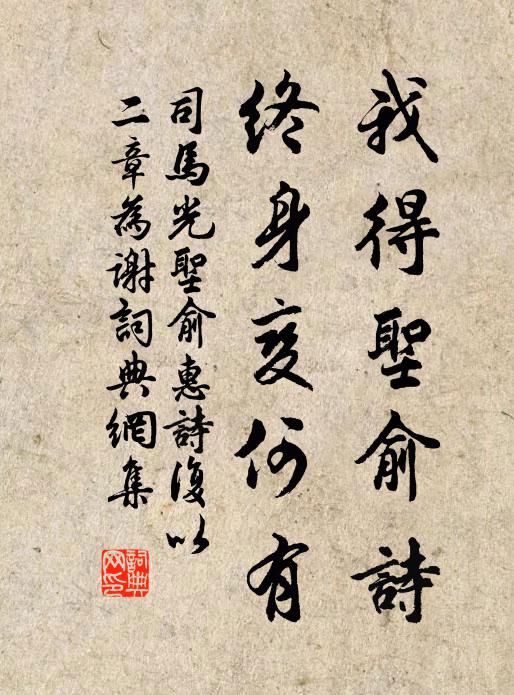 我得聖俞詩
終身变何有
司馬光聖俞惠詩復以
二章為謝詞典網集
詞典网印